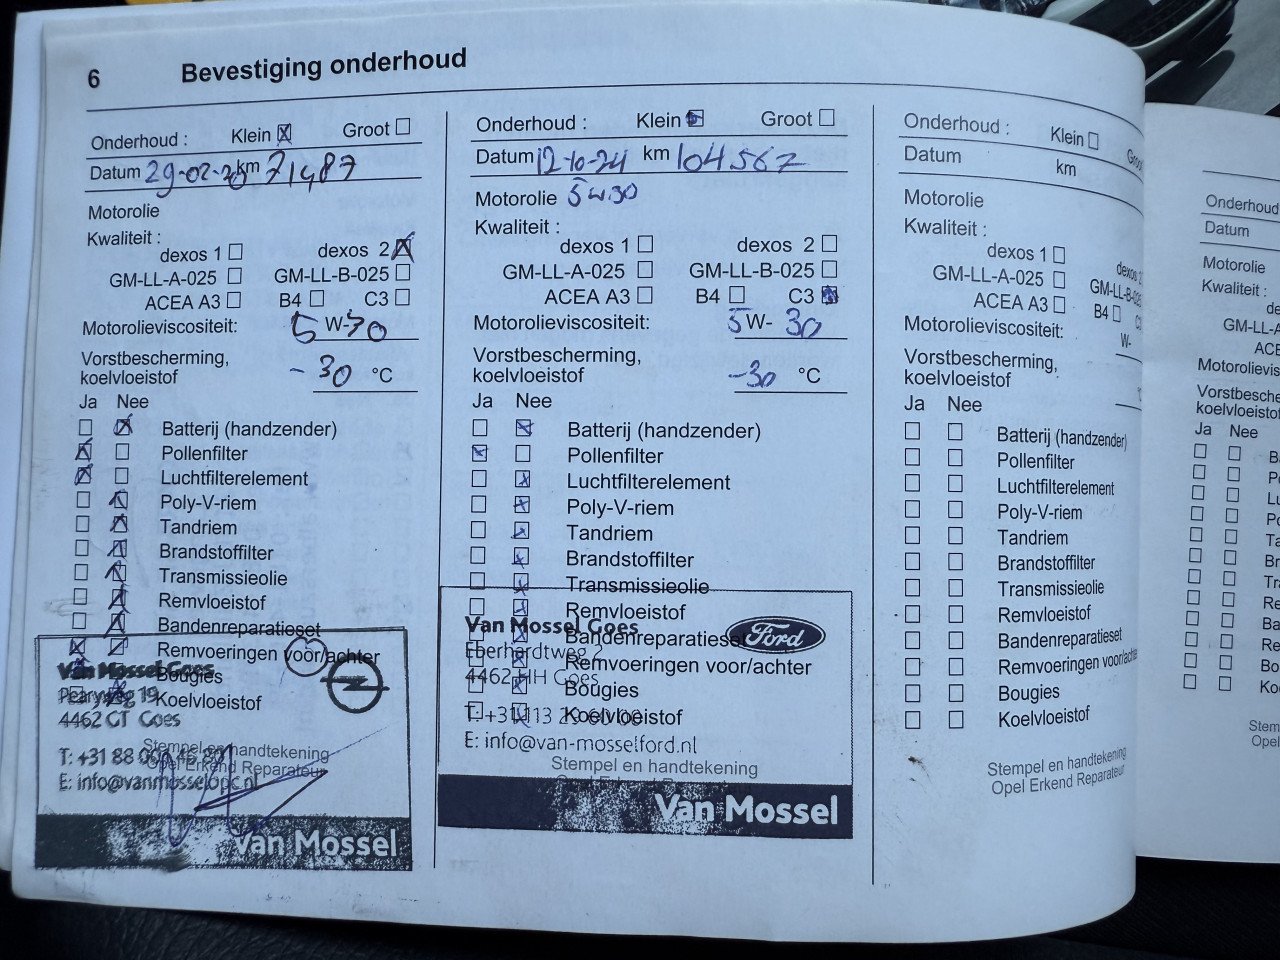 6 Bevestiging onderhoud
Onderhoud : Klein Groot
Datum 29-02-20 km 71487
Motorolie
Kwaliteit :
dexos 1 dexos 2
GM-LL-A-025 GM-LL-B-025
ACEA A3 B4 C3
Motorolieviscositeit: 5 W-30
Vorstbescherming,
koelvloeistof -30 °C
Ja Nee
Batterij (handzender)
Pollenfilter
Luchtfilterelement
Poly-V-riem
Tandriem
Brandstoffilter
Transmissieolie
Remvloeistof
Bandenreparatieset
Remvoeringen voor/achter
Bougies
Koelvloeistof
Van Mossel Goes
Pearyweg 19
4462 GT Goes
Stempel en handtekening
Opel Erkend Reparateur
E: info@vanmosselopc.nl
Van Mossel
Onderhoud : Klein Groot
Datum 12-10-24 km 104567
Motorolie 5w30
Kwaliteit :
dexos 1 dexos 2
GM-LL-A-025 GM-LL-B-025
ACEA A3 B4 C3
Motorolieviscositeit: 5 W- 30
Vorstbescherming,
koelvloeistof -30 °C
Ja Nee
Batterij (handzender)
Pollenfilter
Luchtfilterelement
Poly-V-riem
Tandriem
Brandstoffilter
Transmissieolie
Remvloeistof
Bandenreparatieset
Remvoeringen voor/achter
Bougies
Koelvloeistof
Van Mossel Goes
Ford
Eberhardtweg 2
4462 HH Goes
E: info@van-mosselford.nl
Stempel en handtekening
Van Mossel
Onderhoud : Klein Groo
Datum km
Motorolie
Kwaliteit :
dexos 1 dexos 2
GM-LL-A-025 GM-LL-B-02
ACEA A3 B4 C
Motorolieviscositeit: W-
Vorstbescherming,
koelvloeistof
Ja Nee
Batterij (handzender)
Pollenfilter
Luchtfilterelement
Poly-V-riem
Tandriem
Brandstoffilter
Transmissieolie
Remvloeistof
Bandenreparatieset
Remvoeringen voor/achter
Bougies
Koelvloeistof
Stempel en handtekening
Opel Erkend Reparateur
Onderhoud
Datum
Motorolie
Kwaliteit :
de
GM-LL-A
ACE
Motorolievis
Vorstbescher
koelvloeistof
Ja Nee
Ba
Po
Lu
Po
Ta
Br
Tra
Re
Ba
Re
Bo
Ko
Stem
Opel